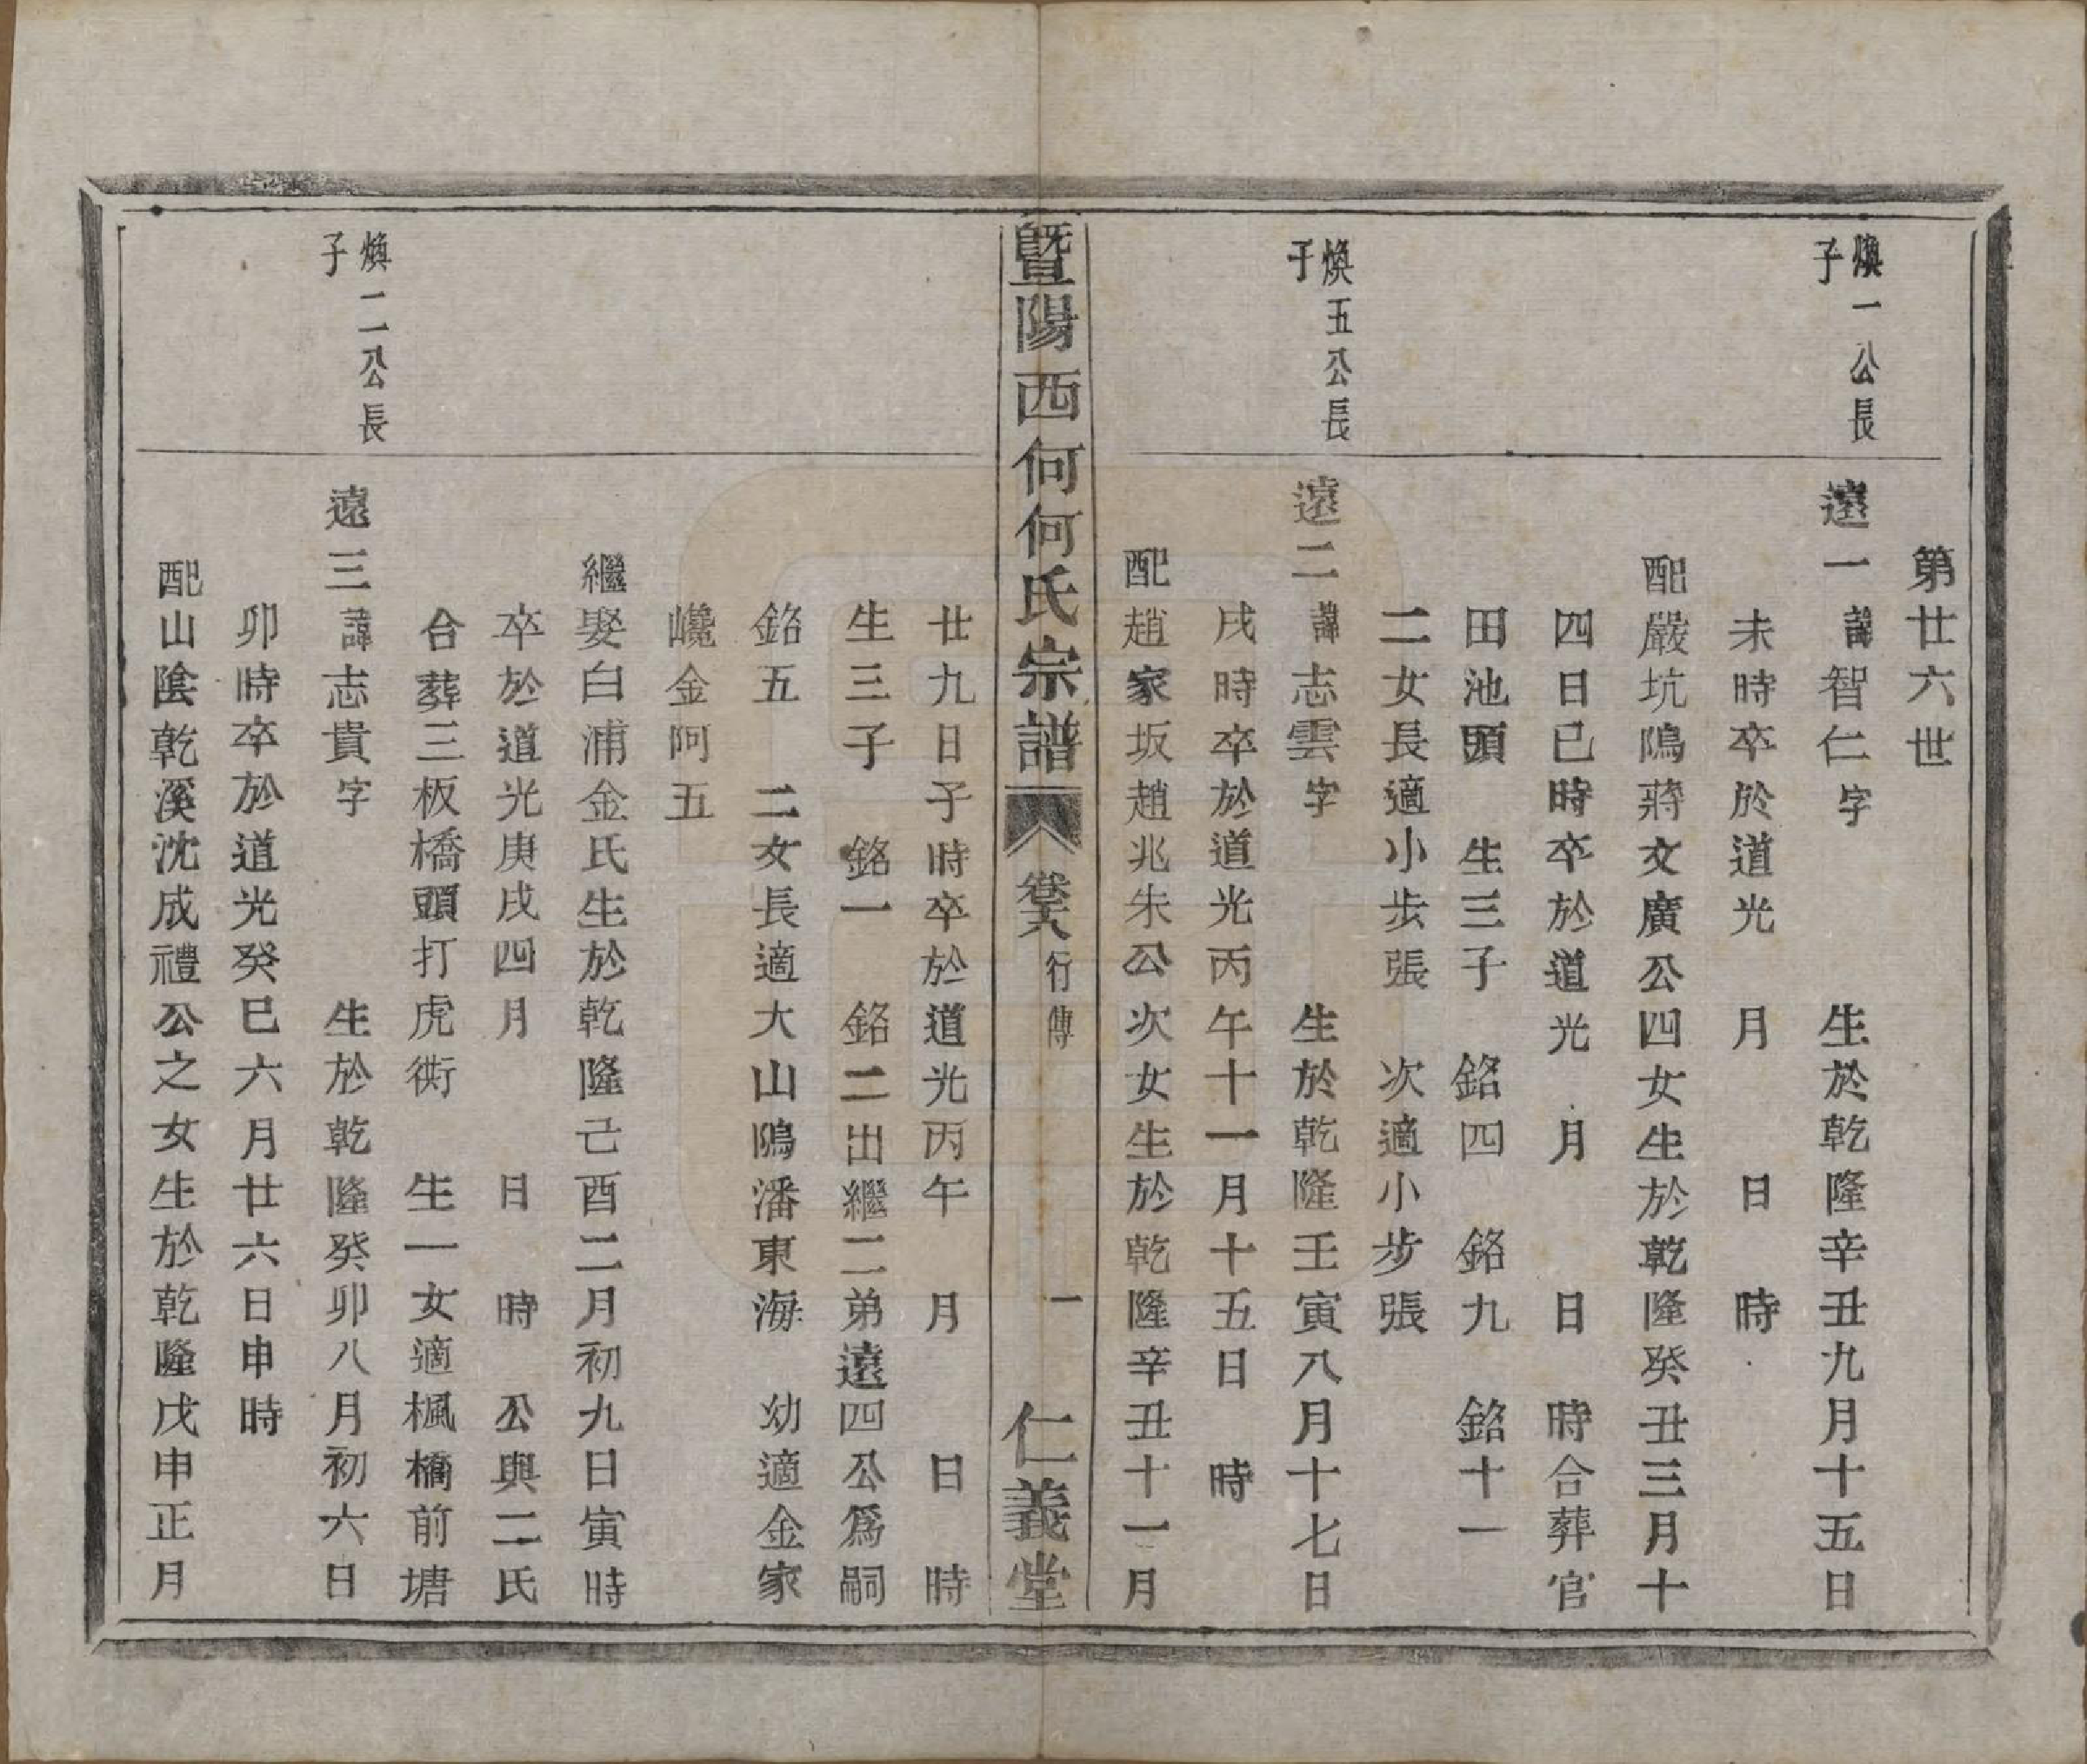 第廿六世
煥一公長
子
遠一諱智仁字　生於乾隆辛丑九月十五日
未時卒於道光　月　日　時
配嚴坑隝蔣文廣公四女生於乾隆癸丑三月十
四日巳時卒於道光　月　日　時合葬官
田池頭　生三子　銘四　銘九　銘十一
二女長適小步張　次適小步張
煥五公長
子
遠二諱志雲字　生於乾隆壬寅八月十七日
戌時卒於道光丙午十一月十五日　時
配趙家坂趙兆朱公次女生於乾隆辛丑十一月
暨陽西何何氏宗譜　卷六　行傳　一　仁義堂
廿九日子時卒於道光丙午　月　日　時
生三子　銘一　銘二出繼二弟遠四公爲嗣
銘五　二女長適大山隝潘東海　幼適金家
巉金阿五
繼娶白浦金氏生於乾隆己酉二月初九日寅時
卒於道光庚戌四月　日　時　公與二氏
合葬三板橋頭打虎衖　生一女適楓橋前塘
煥二公長
子
遠三諱志貴字　生於乾隆癸卯八月初六日
卯時卒於道光癸巳六月廿六日申時
配山陰乾溪沈成禮公之女生於乾隆戊申正月